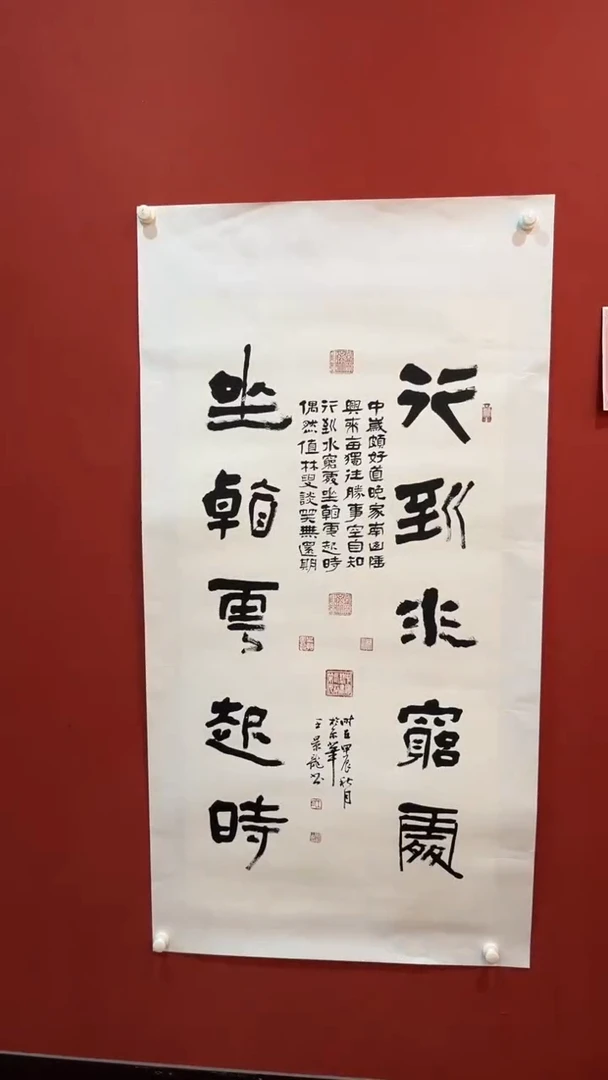 行到水窮處
坐看雲起時
中歲頗好道晚家南山陲
興來每獨往勝事空自知
行到水窮處坐看雲起時
偶然值林叟談笑無還期
時在甲辰秋月
於京華
王景龍書